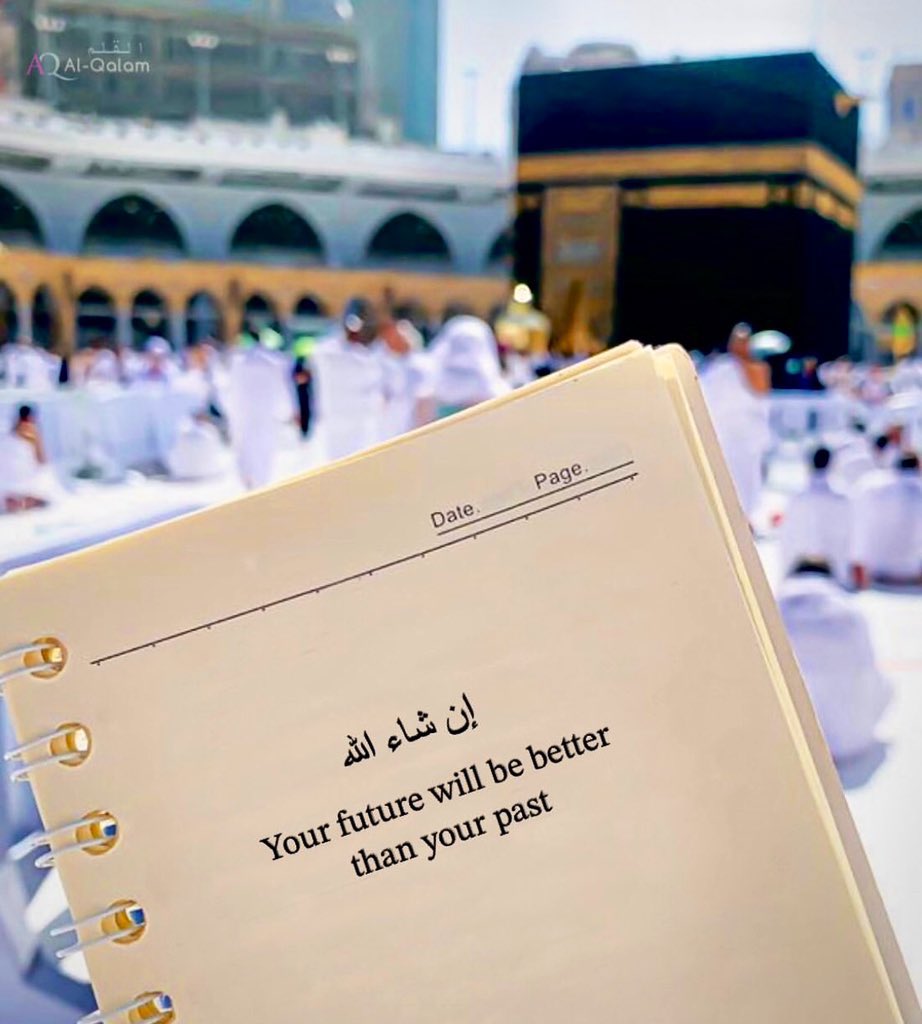 القلم
AQ Al-Qalam
Date. Page.
إن شاء الله
Your future will be better
than your past